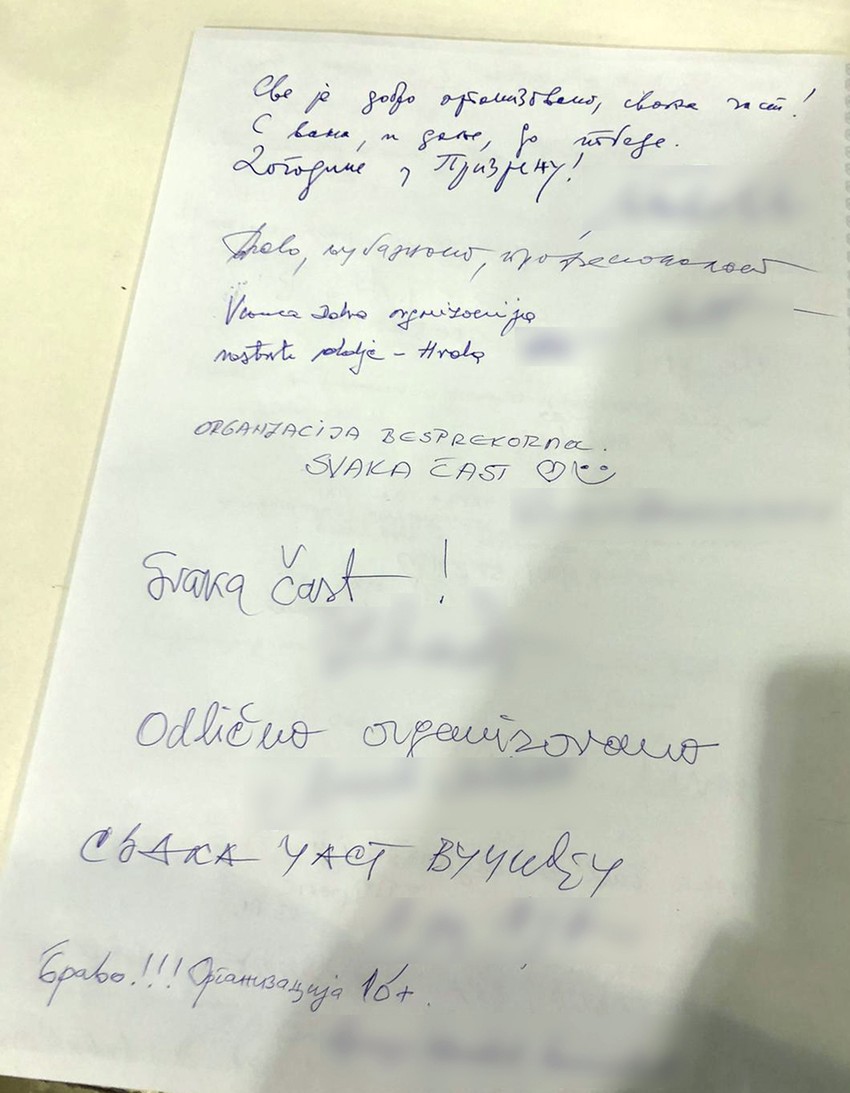 Све је добро организовано, свака част!
С вама, и даље, до победе.
Догодине у Призрену!
Браво, професионалност
Veoma dobra organizacija
nastavite dalje - Hvala
ORGANIZACIJA BESPREKORNA.
SVAKA ČAST
Svaka čast !
Odlično organizovano
СВАКА ЧАСТ ВУЧИЋУ
Браво!!! Организација 10+.